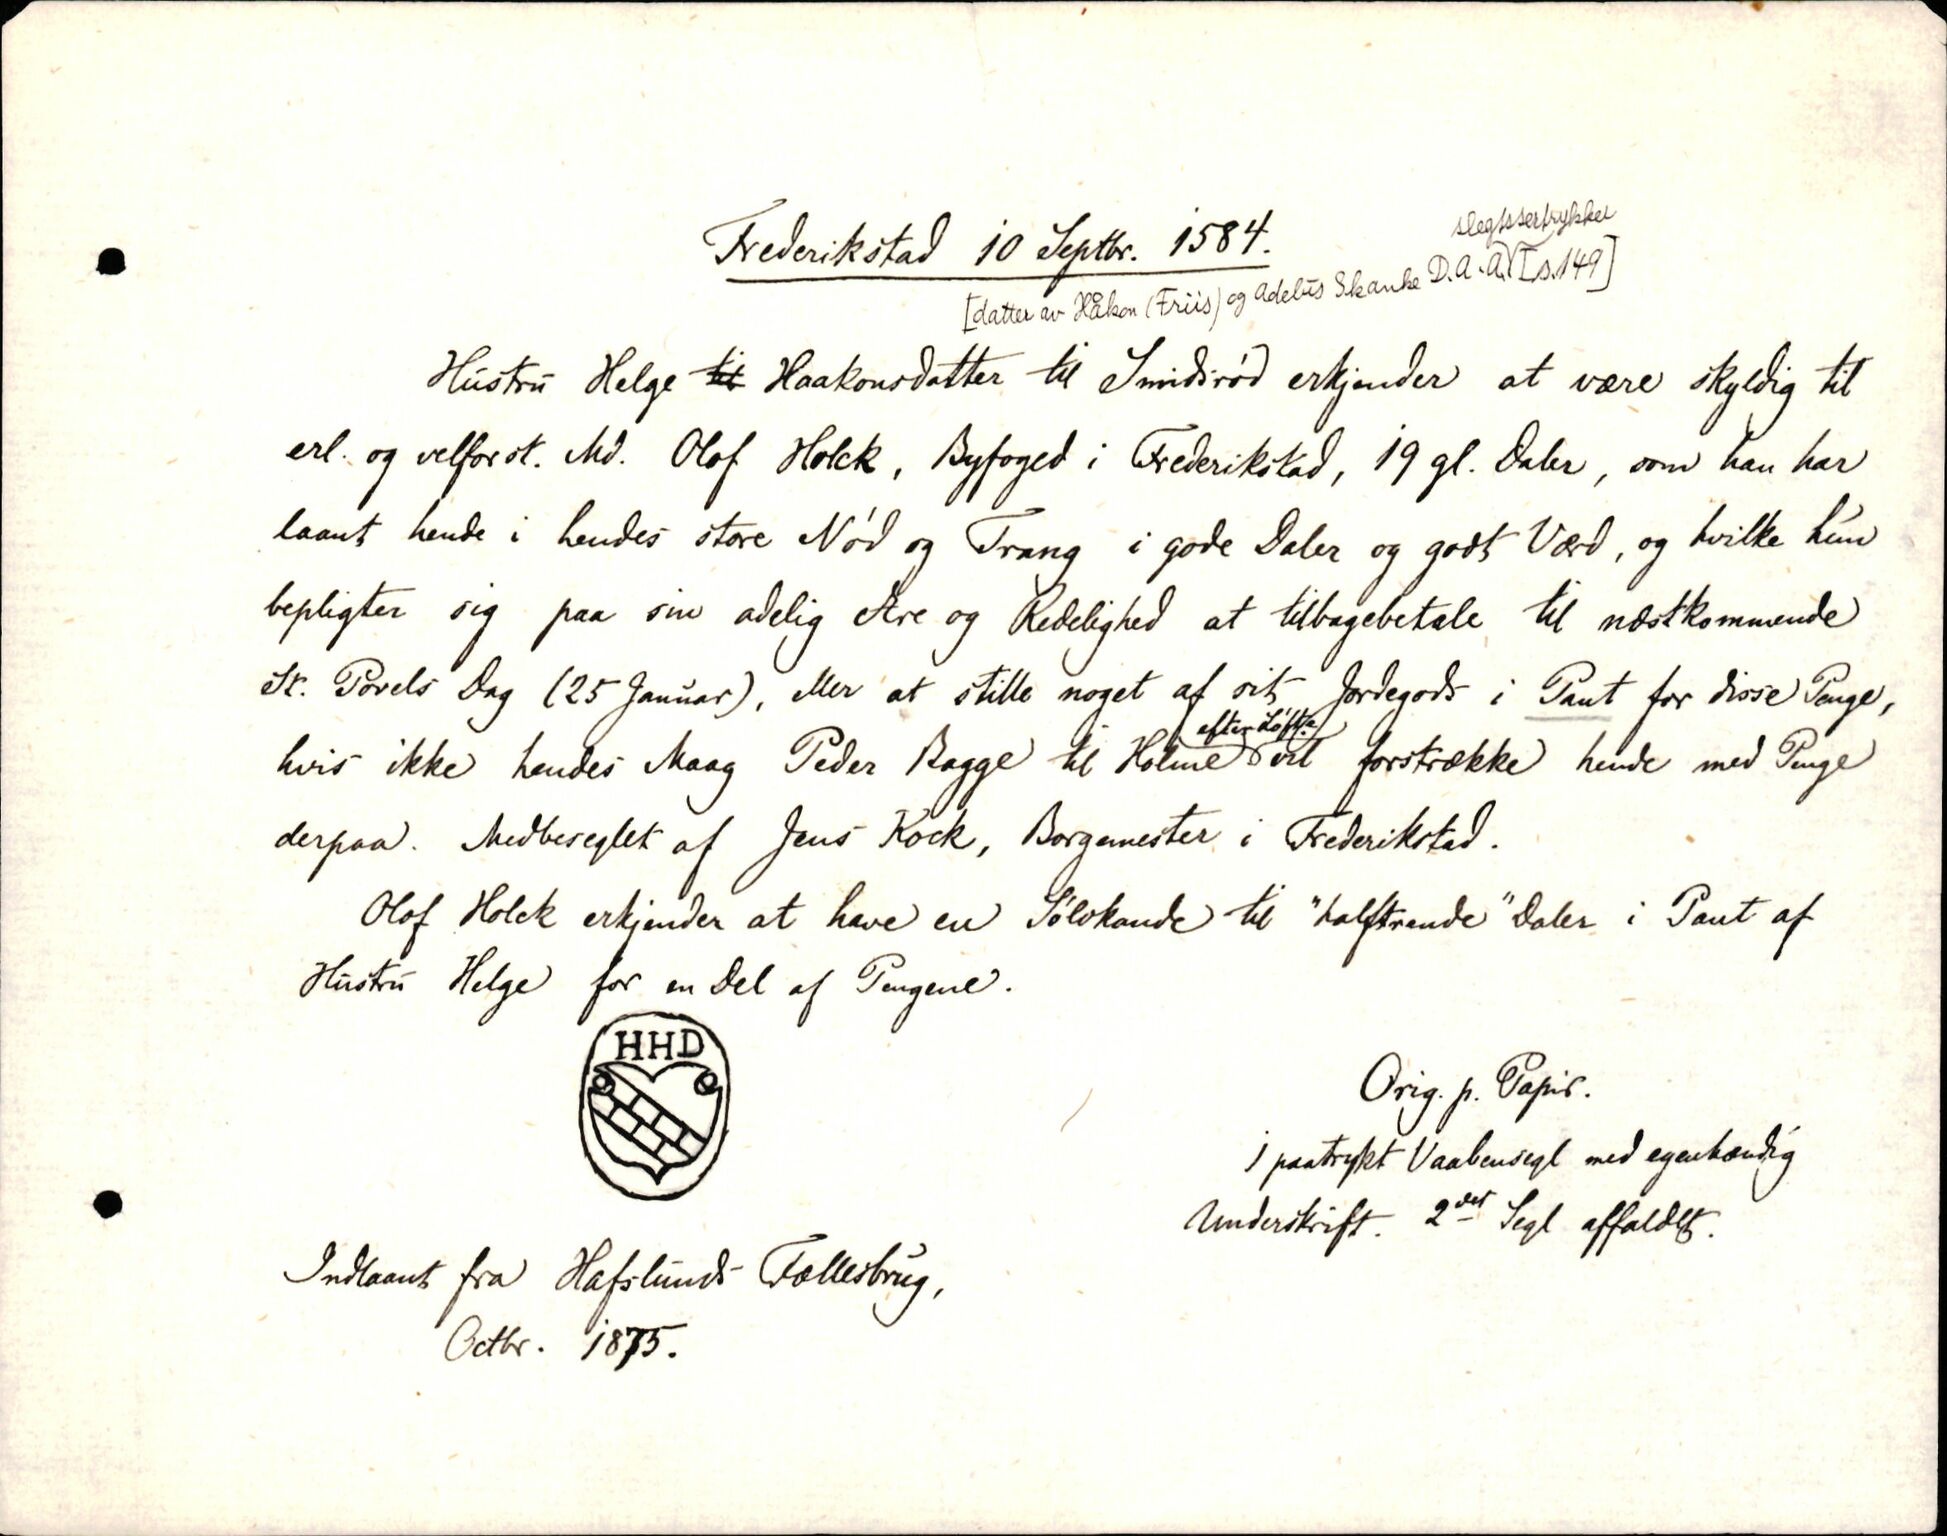 Frederikstad 10 Septbr. 1584.
slegtssertrykket
[datter av Håkon (Friis) og Adelus Skanke D.A.A. [s.149]
Hustru Helge til Haakonsdatter til Smidsrød erkjender at være skyldig til
erl. og velforst. Md. Olof Holck, Byfoged i Frederikstad, 19 gl. Daler, som han har
laant hende i hendes store Nød og Trang i gode Daler og godt Værd, og hvilke hun
bepligter sig paa sin adelig Ære og Redelighed at tilbagebetale til næstkommende
St. Povels Dag (25 Januar), eller at stille noget af sit Jordegods i Pant for disse Penge,
efter Løfte
hvis ikke hendes Maag Peder Bagge til Holme vil forstrække hende med Penge
derpaa. Medbeseglet af Jens Kock, Borgemester i Frederikstad.
Olof Holck erkjender at have en Sølvkande til "halftrende" Daler i Pant af
Hustru Helge for en Del af Pengene.
HHD
Orig. p. Papir.
1 paatrykt Vaabensegl med egenhændig
Underskrift. 2det Segl affaldet.
Indlaant fra Hafslunds Fællesbrug,
Octbr. 1875.